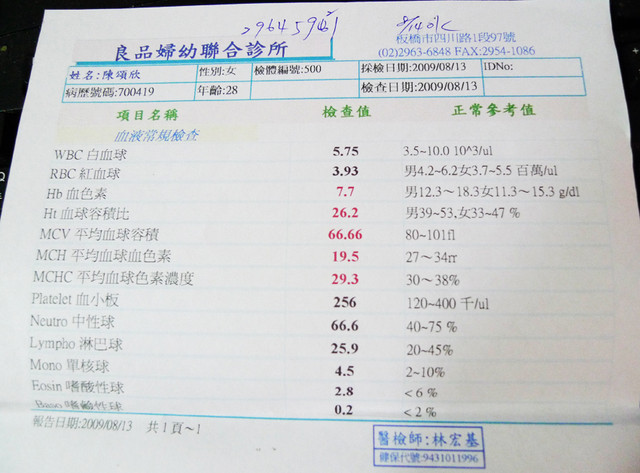 良品婦幼聯合診所
板橋市四川路1段97號
(02)2963-6848 FAX:2954-1086
姓名:陳頌欣 性別:女 檢體編號:500 採檢日期:2009/08/13 IDNo:
病歷號碼:700419 年齡:28 檢查日期:2009/08/13
項目名稱 檢查值 正常參考值
血液常規檢查
WBC 白血球 5.75 3.5~10.0 10^3/ul
RBC 紅血球 3.93 男4.2~6.2女3.7~5.5 百萬/ul
Hb 血色素 7.7 男12.3~18.3女11.3~15.3 g/dl
Ht 血球容積比 26.2 男39~53,女33~47 %
MCV 平均血球容積 66.66 80~101fl
MCH 平均血球血色素 19.5 27~34rr
MCHC 平均血球色素濃度 29.3 30~38%
Platelet 血小板 256 120~400 千/ul
Neutro 中性球 66.6 40~75 %
Lympho 淋巴球 25.9 20~45%
Mono 單核球 4.5 2~10%
Eosin 嗜酸性球 2.8 < 6 %
Baso 嗜鹼性球 0.2 < 2 %
報告日期:2009/08/13 共1頁~1
醫檢師:林宏基
健保代號:9431011996